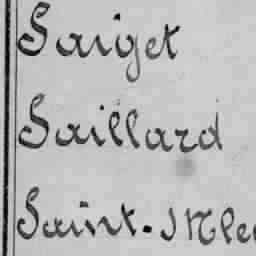 Saiget
Saillard
Saint-